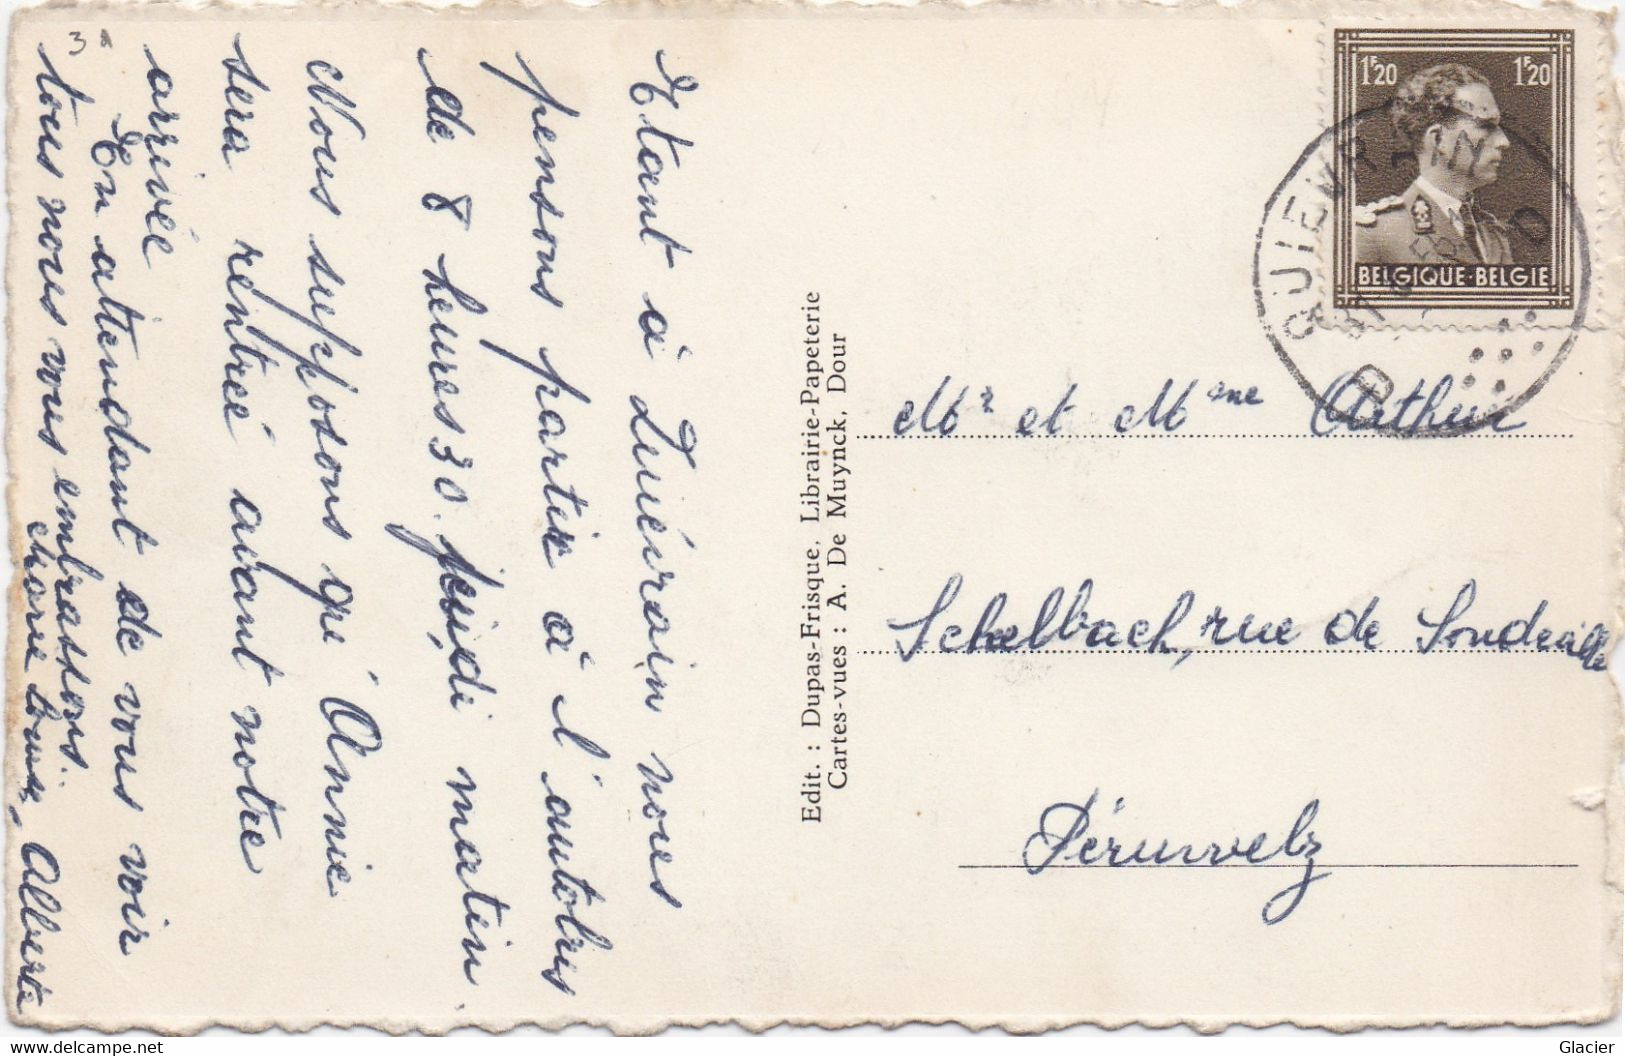 Etant à Quiévrain nous
pensons partir à l'autobus
de 8 heures 30. jeudi matin.
Nous supposons qu' Annie
sera rentrée avant notre
arrivée
En attendant de vous voir
tous nous vous embrassons.
Alberte
Edit. : Dupas-Frisque, Librairie-Papeterie
Cartes-vues : A. De Muynck, Dour
1F20 1F20
BELGIQUE·BELGIE
QUIEVR
Mr et Mme Arthur
Schelbach, rue de
Péruwelz
www.delcampe.net
Glacier